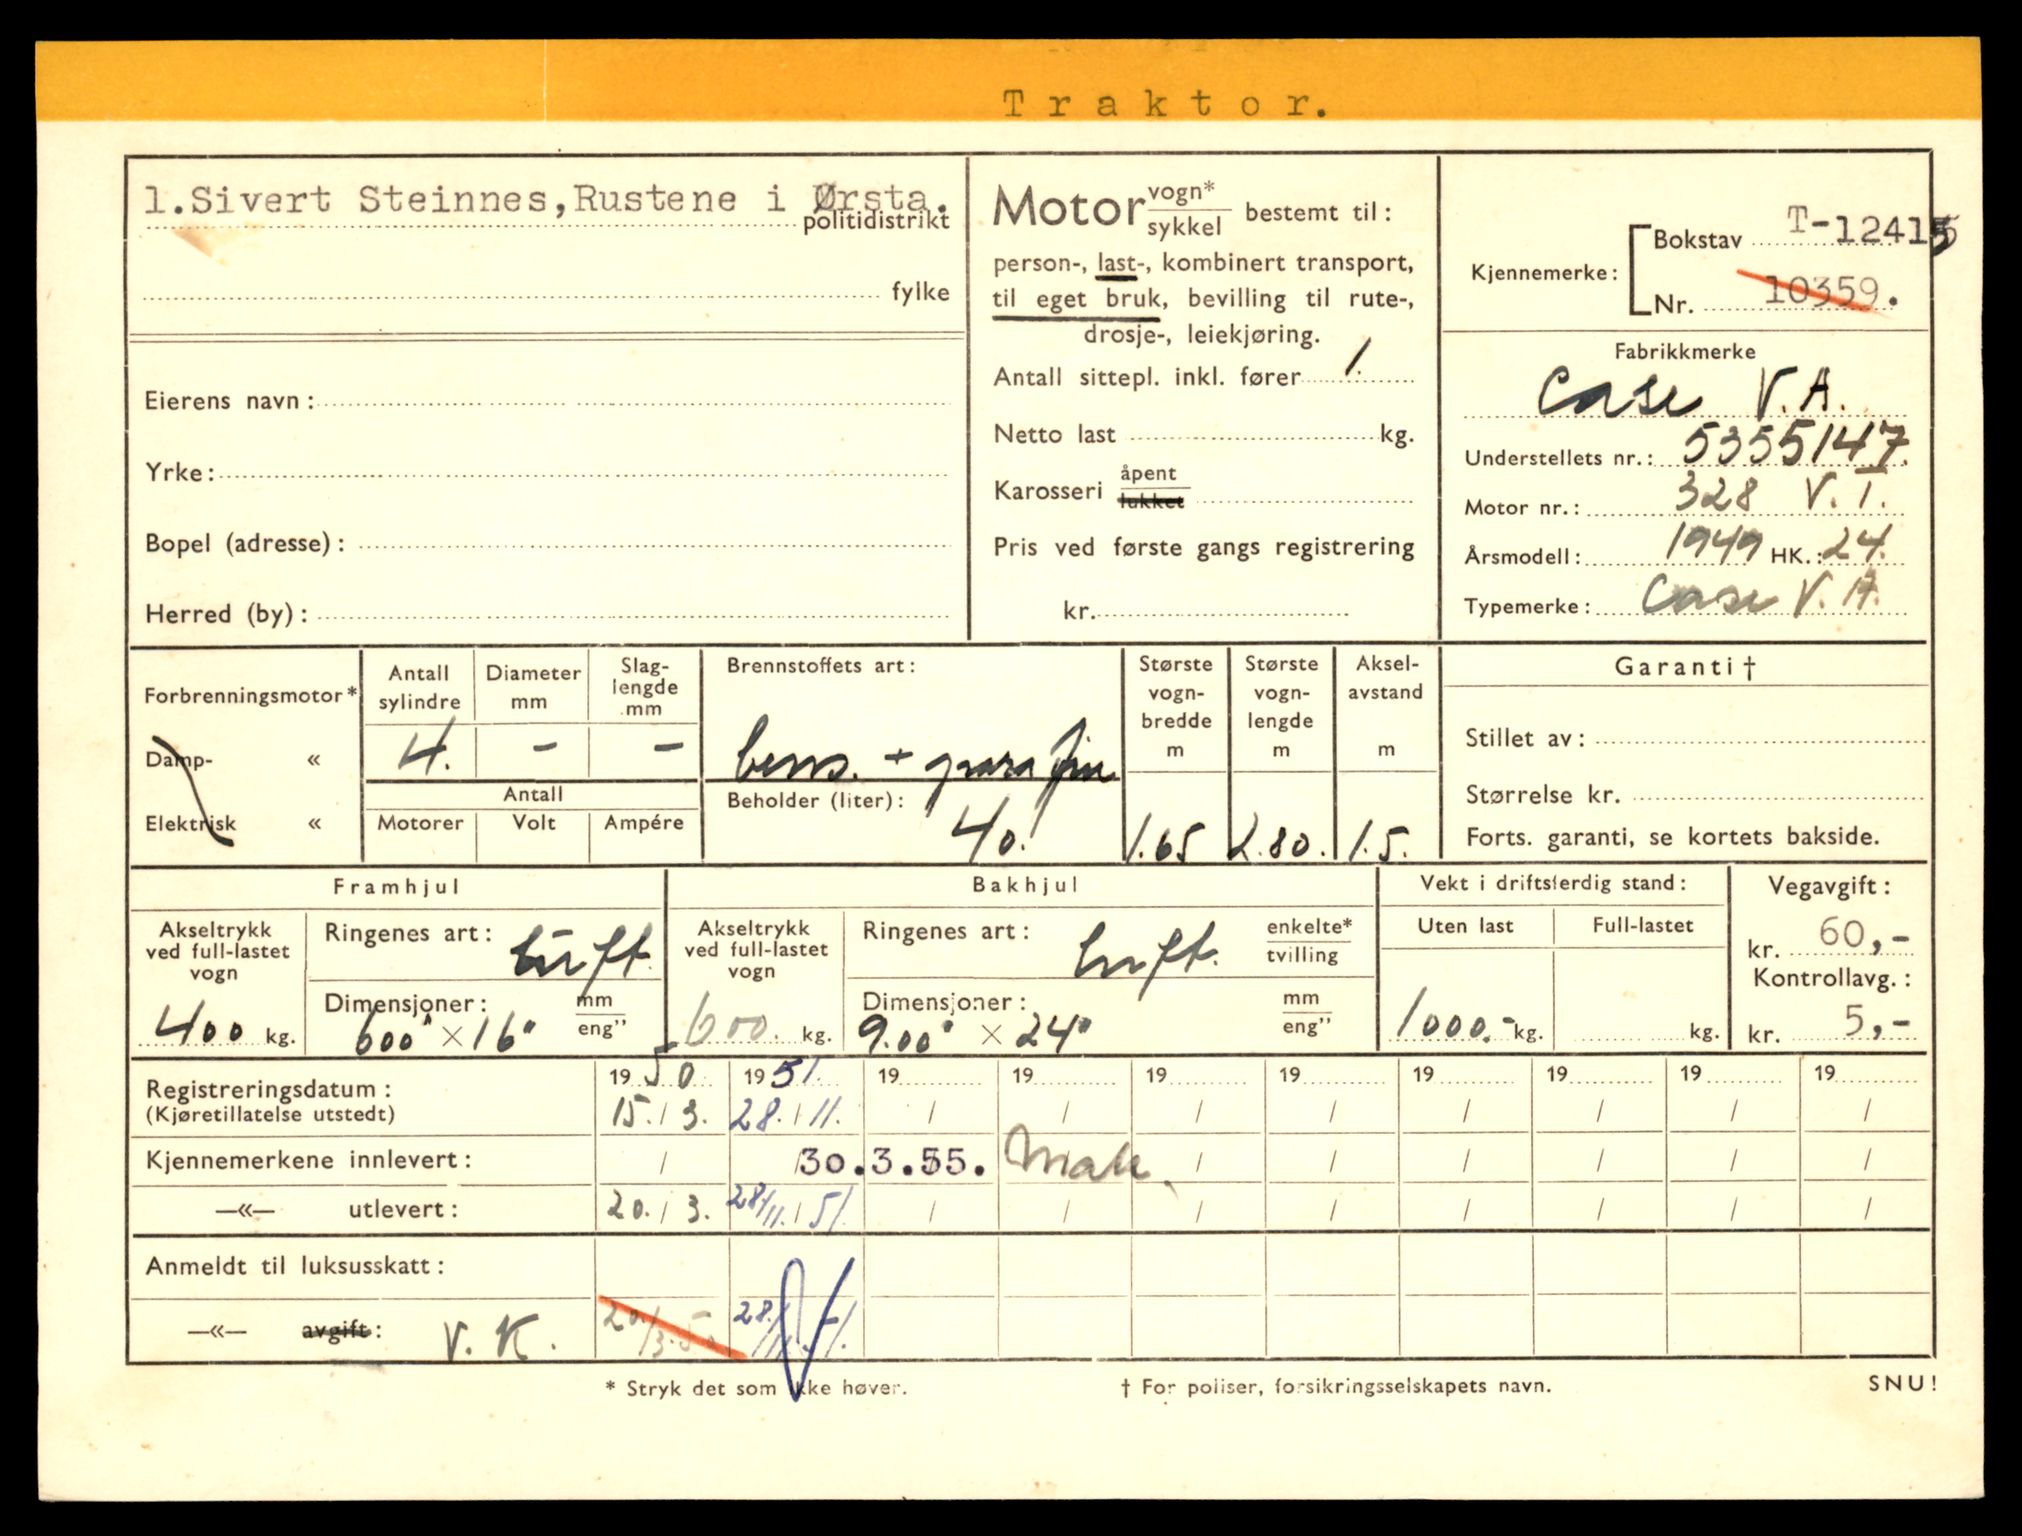 Traktor.
1.Sivert Steinnes, Rustene i Ørsta.
politidistrikt
fylke
Eierens navn:
Yrke:
Bopel (adresse):
Herred (by):
Motor vogn* sykkel bestemt til:
person-, last-, kombinert transport,
til eget bruk, bevilling til rute-,
drosje-, leiekjøring.
Antall sittepl. inkl. fører 1.
Netto last kg.
Karosseri åpent lukket
Pris ved første gangs registrering
kr.
Kjennemerke: Bokstav T-12415
Nr. 10359.
Fabrikkmerke
Case V.A.
Understellets nr.: 5355147.
Motor nr.: 328 V.I.
Årsmodell: 1949 HK.: 24.
Typemerke: Case V.A.
Forbrenningsmotor*
Damp- «
Elektrisk «
Antall sylindre 4.
Diameter mm -
Slag-lengde mm -
Antall
Motorer Volt Ampére
Brennstoffets art:
bens. + parafin
Beholder (liter):
40.
Største vogn-bredde m 1.65
Største vogn-lengde m 2.80.
Aksel-avstand m 1.5.
Garanti †
Stillet av:
Størrelse kr.
Forts. garanti, se kortets bakside.
Framhjul
Akseltrykk ved full-lastet vogn
400 kg.
Ringenes art: luft.
Dimensjoner: mm eng"
600" × 16"
Bakhjul
Akseltrykk ved full-lastet vogn
600. kg.
Ringenes art: luft. enkelte* tvilling
Dimensjoner: mm eng"
9.00" × 24"
Vekt i driftsferdig stand:
Uten last Full-lastet
1000.- kg. kg.
Vegavgift:
kr. 60,-
Kontrollavg.:
kr. 5,-
Registreringsdatum: 1950 1951. 19 19 19 19 19 19 19 19
(Kjøretillatelse utstedt) 15./3. 28./11. / / / / / / / /
Kjennemerkene innlevert: / 30.3.55. / / / / / /
—«— utlevert: 20./3. 28/11./51. / / / / / / / /
Anmeldt til luksusskatt:
—«— avgift: V.K. 20./3.50 28./11.51.
* Stryk det som ikke høver.
† For poliser, forsikringsselskapets navn.
SNU!